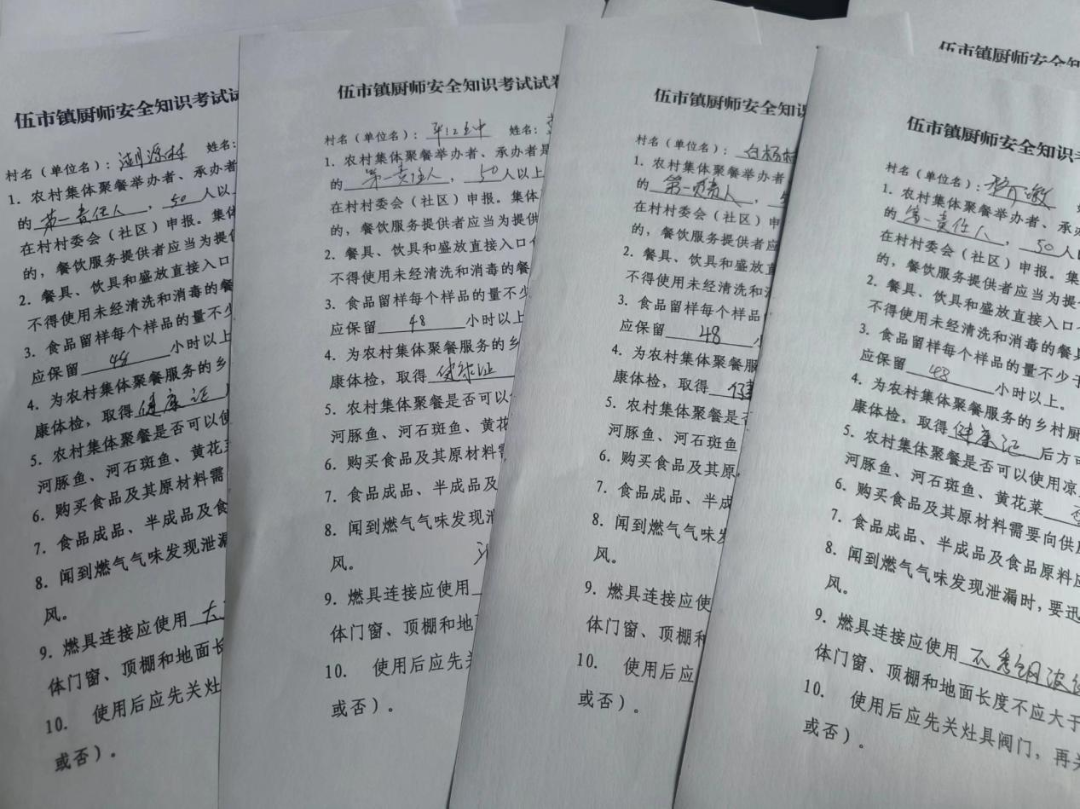 伍市镇厨师安全知识考试试
村名（单位名）：湖源村 姓名：
1. 农村集体聚餐举办者、承办者
的 第一责任人 ，50 人以
在村村委会（社区）申报。集体
的，餐饮服务提供者应当为提
2. 餐具、饮具和盛放直接入口
不得使用未经清洗和消毒的餐
3. 食品留样每个样品的量不少
应保留 48 小时以上
4. 为农村集体聚餐服务的乡
康体检，取得 健康证
5. 农村集体聚餐是否可以使
河豚鱼、河石斑鱼、黄花菜
6. 购买食品及其原材料需
7. 食品成品、半成品及食
8. 闻到燃气气味发现泄漏
风。
9. 燃具连接应使用 不
体门窗、顶棚和地面长
10. 使用后应先关灶
或否）。
伍市镇厨师安全知识考试试卷
村名（单位名）： 姓名：
1. 农村集体聚餐举办者、承办者是
的 第一责任人 ，50 人以上
在村村委会（社区）申报。集体
的，餐饮服务提供者应当为提供
2. 餐具、饮具和盛放直接入口
不得使用未经清洗和消毒的餐
3. 食品留样每个样品的量不少
应保留 48 小时以上
4. 为农村集体聚餐服务的乡
康体检，取得 健康证
5. 农村集体聚餐是否可以
河豚鱼、河石斑鱼、黄
6. 购买食品及其原材料
7. 食品成品、半成品及
8. 闻到燃气气味发现泄
风。
9. 燃具连接应使用
体门窗、顶棚和地
10. 使用后应先关
或否）。
伍市镇厨师安全知识
村名（单位名）：白杨村
1. 农村集体聚餐举办者
的 第一责任人 ，
在村村委会（社区）申
的，餐饮服务提供者应
2. 餐具、饮具和盛放
不得使用未经清洗和
3. 食品留样每个样品
应保留 48
4. 为农村集体聚餐服
康体检，取得 健
5. 农村集体聚餐是
河豚鱼、河石斑鱼
6. 购买食品及其原
7. 食品成品、半成
8. 闻到燃气气味发
风。
9. 燃具连接应使
体门窗、顶棚和
10. 使用后应
或否）。
伍市镇厨师安全知
伍市镇厨师安全知识考
村名（单位名）：
1. 农村集体聚餐举办者、承办
的 第一责任人 ，50 人
在村村委会（社区）申报。集
的，餐饮服务提供者应当为提
2. 餐具、饮具和盛放直接入口
不得使用未经清洗和消毒的餐具
3. 食品留样每个样品的量不少于
应保留 48 小时以上。
4. 为农村集体聚餐服务的乡村厨
康体检，取得 健康证 后方可
5. 农村集体聚餐是否可以使用凉
河豚鱼、河石斑鱼、黄花菜
6. 购买食品及其原材料需要向供应
7. 食品成品、半成品及食品原料应
8. 闻到燃气气味发现泄漏时，要迅
风。
9. 燃具连接应使用 不锈钢波
体门窗、顶棚和地面长度不应大于
10. 使用后应先关灶具阀门，再关
或否）。